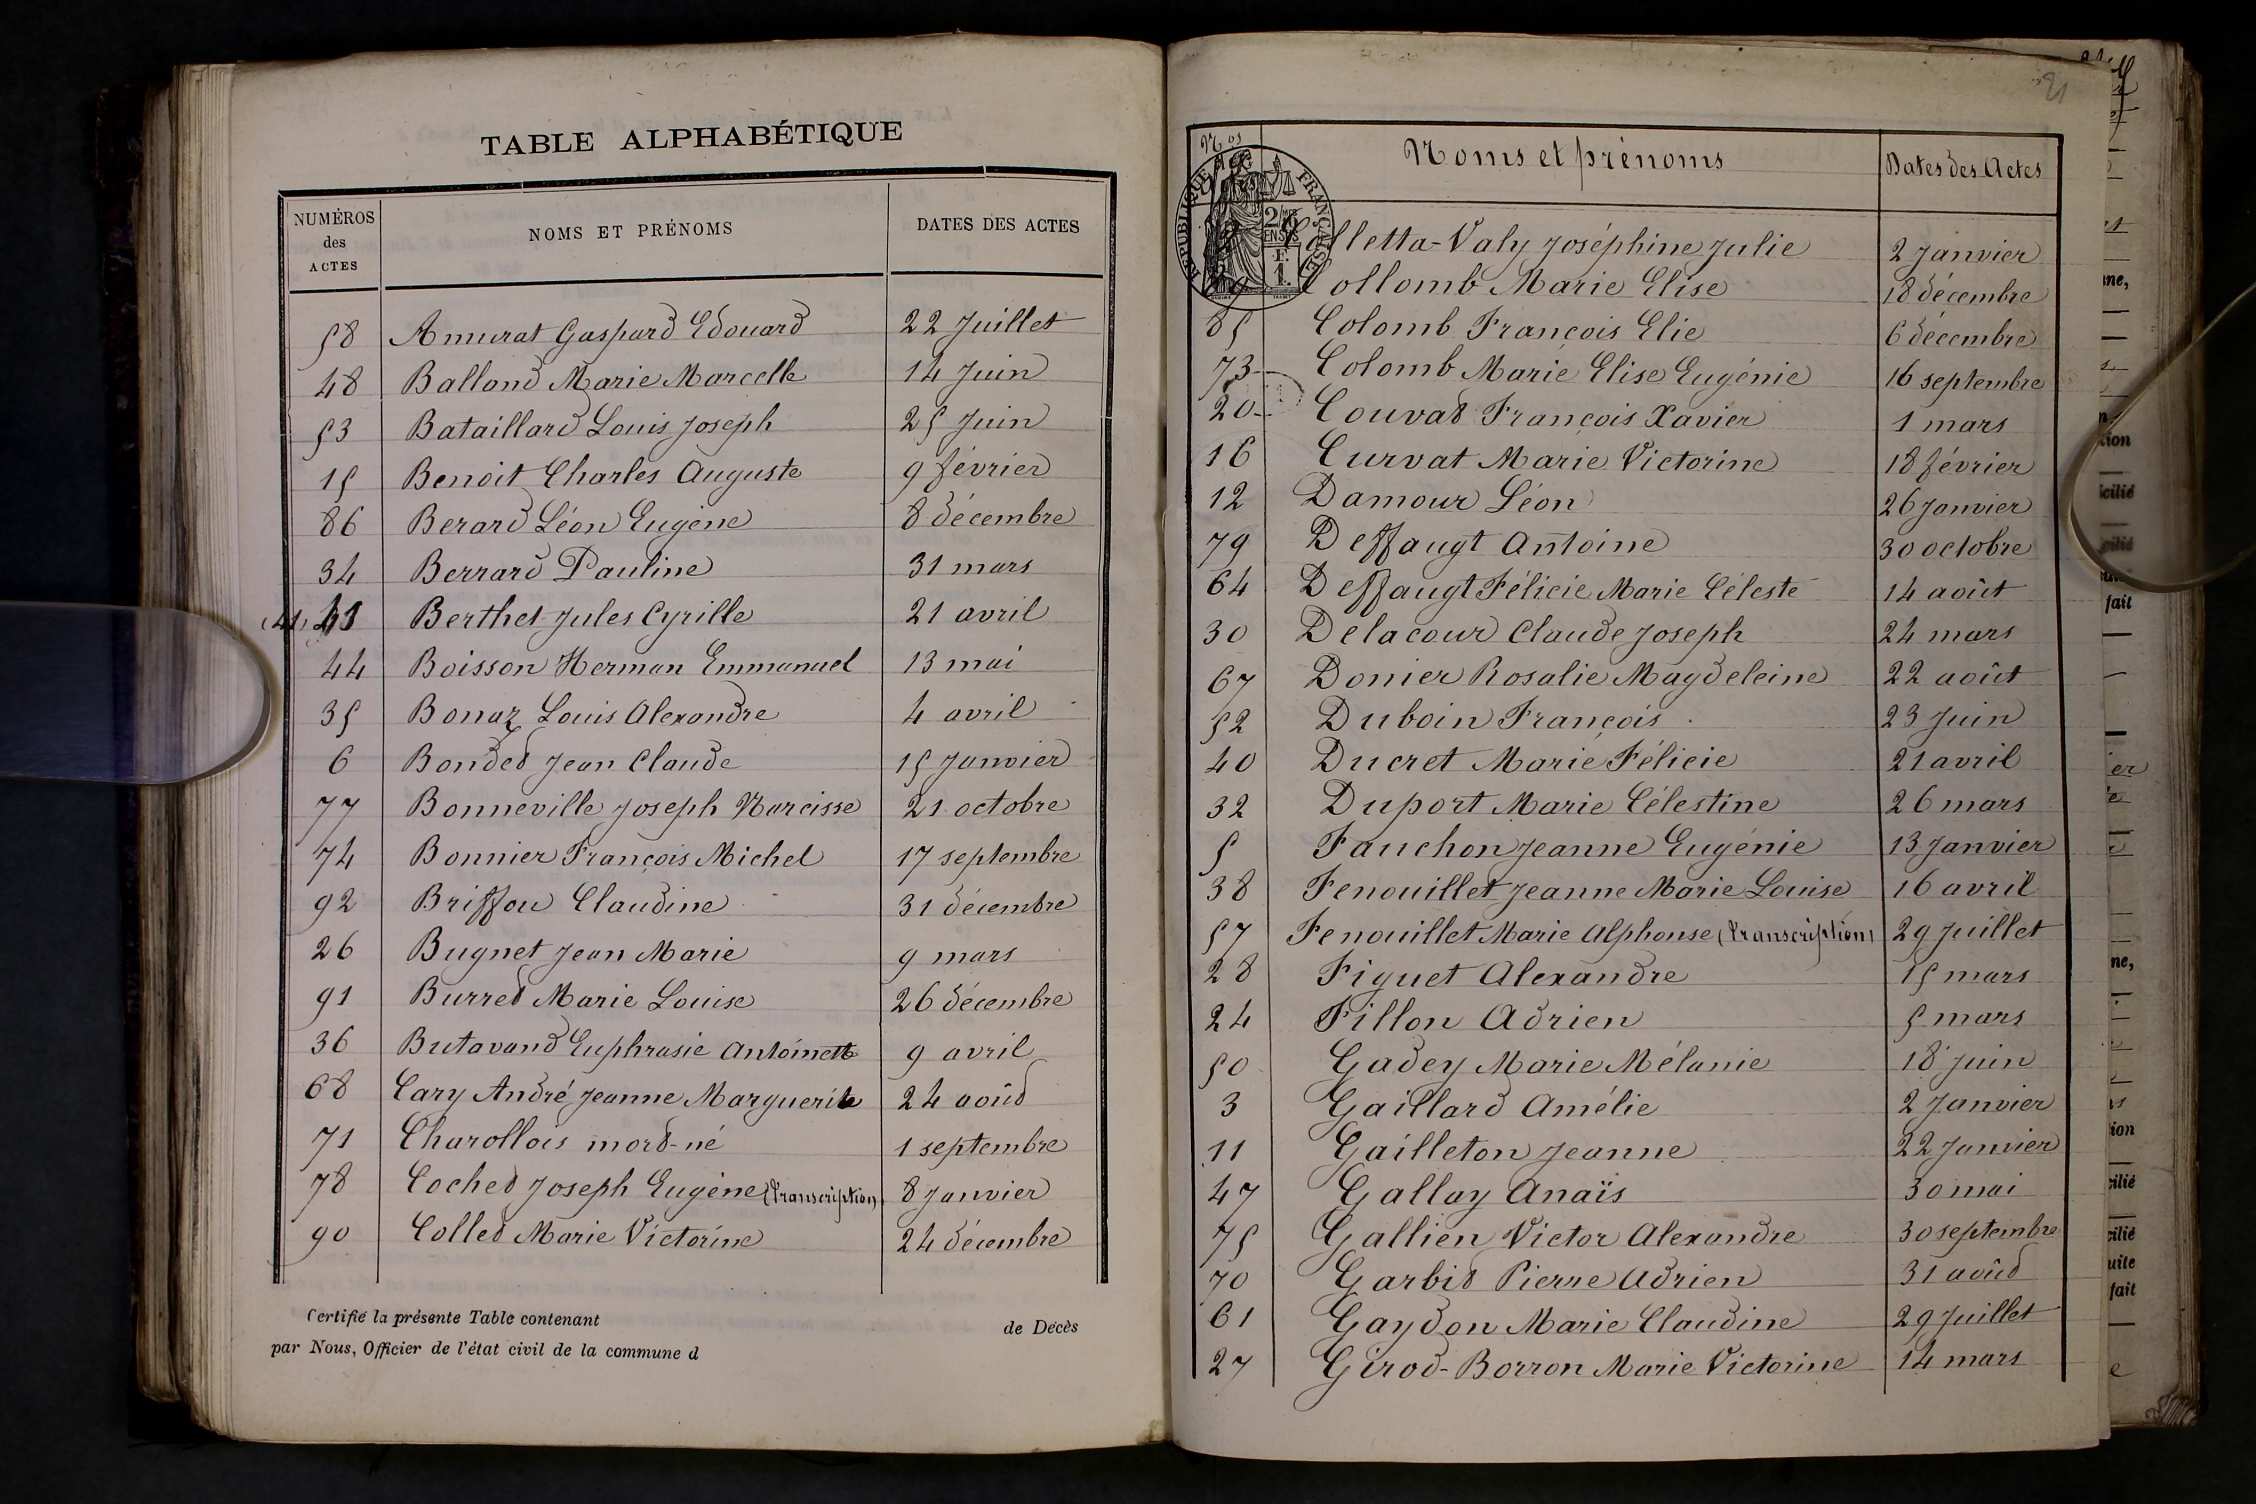 TABLE ALPHABÉTIQUE
NUMÉROS des ACTES NOMS ET PRÉNOMS DATES DES ACTES
58 Amurat Gaspard Edouard 22 Juillet
48 Balland Marie Marcelle 14 Juin
53 Bataillard Louis Joseph 25 Juin
15 Benoit Charles Auguste 9 février
86 Berard Léon Eugène 8 décembre
34 Berrard Pauline 31 mars
(41) 41 Berthet Jules Cyrille 21 avril
44 Boisson Herman Emmanuel 13 mai
35 Bonaz Louis Alexandre 4 avril
6 Bondet Jean Claude 15 Janvier
77 Bonneville Joseph Narcisse 21 octobre
74 Bonnier François Michel 17 septembre
92 Briffou Claudine 31 décembre
26 Bugnet Jean Marie 9 mars
91 Burret Marie Louise 26 décembre
36 Butavand Euphrasie Antoinette 9 avril
68 Cary André Jeanne Marguerite 24 août
71 Charollois mort-né 1 septembre
78 Cochet Joseph Eugène (Transcription) 8 Janvier
90 Collet Marie Victorine 24 décembre
Certifié la présente Table contenant de Décès
par Nous, Officier de l'état civil de la commune d
Nos Noms et prénoms Dates des Actes
RÉPUBLIQUE FRANÇAISE
Colletta-Valy Joséphine Julie 2 Janvier
Collomb Marie Elise 18 décembre
85 Colomb François Elie 6 décembre
73 Colomb Marie Elise Eugénie 16 septembre
20 Couvat François Xavier 1 mars
16 Curvat Marie Victorine 18 février
12 Damour Léon 26 Janvier
79 Deffaugt Antoine 30 octobre
64 Deffaugt Félicie Marie Céleste 14 août
30 Delacour Claude Joseph 24 mars
67 Donier Rosalie Magdeleine 22 août
52 Duboin François 23 Juin
40 Ducret Marie Félicie 21 avril
32 Duport Marie Célestine 26 mars
5 Fauchon Jeanne Eugénie 13 Janvier
38 Fenouillet Jeanne Marie Louise 16 avril
57 Fenouillet Marie Alphonse (Transcription) 29 Juillet
28 Figuet Alexandre 15 mars
24 Fillon Adrien 5 mars
50 Gadey Marie Mélanie 18 Juin
3 Gaillard Amélie 2 Janvier
11 Gailleton Jeanne 22 Janvier
47 Gallay Anaïs 30 mai
75 Gallien Victor Alexandre 30 septembre
70 Garbit Pierre Adrien 31 août
61 Gaydon Marie Claudine 29 Juillet
27 Girod-Borron Marie Victorine 14 mars